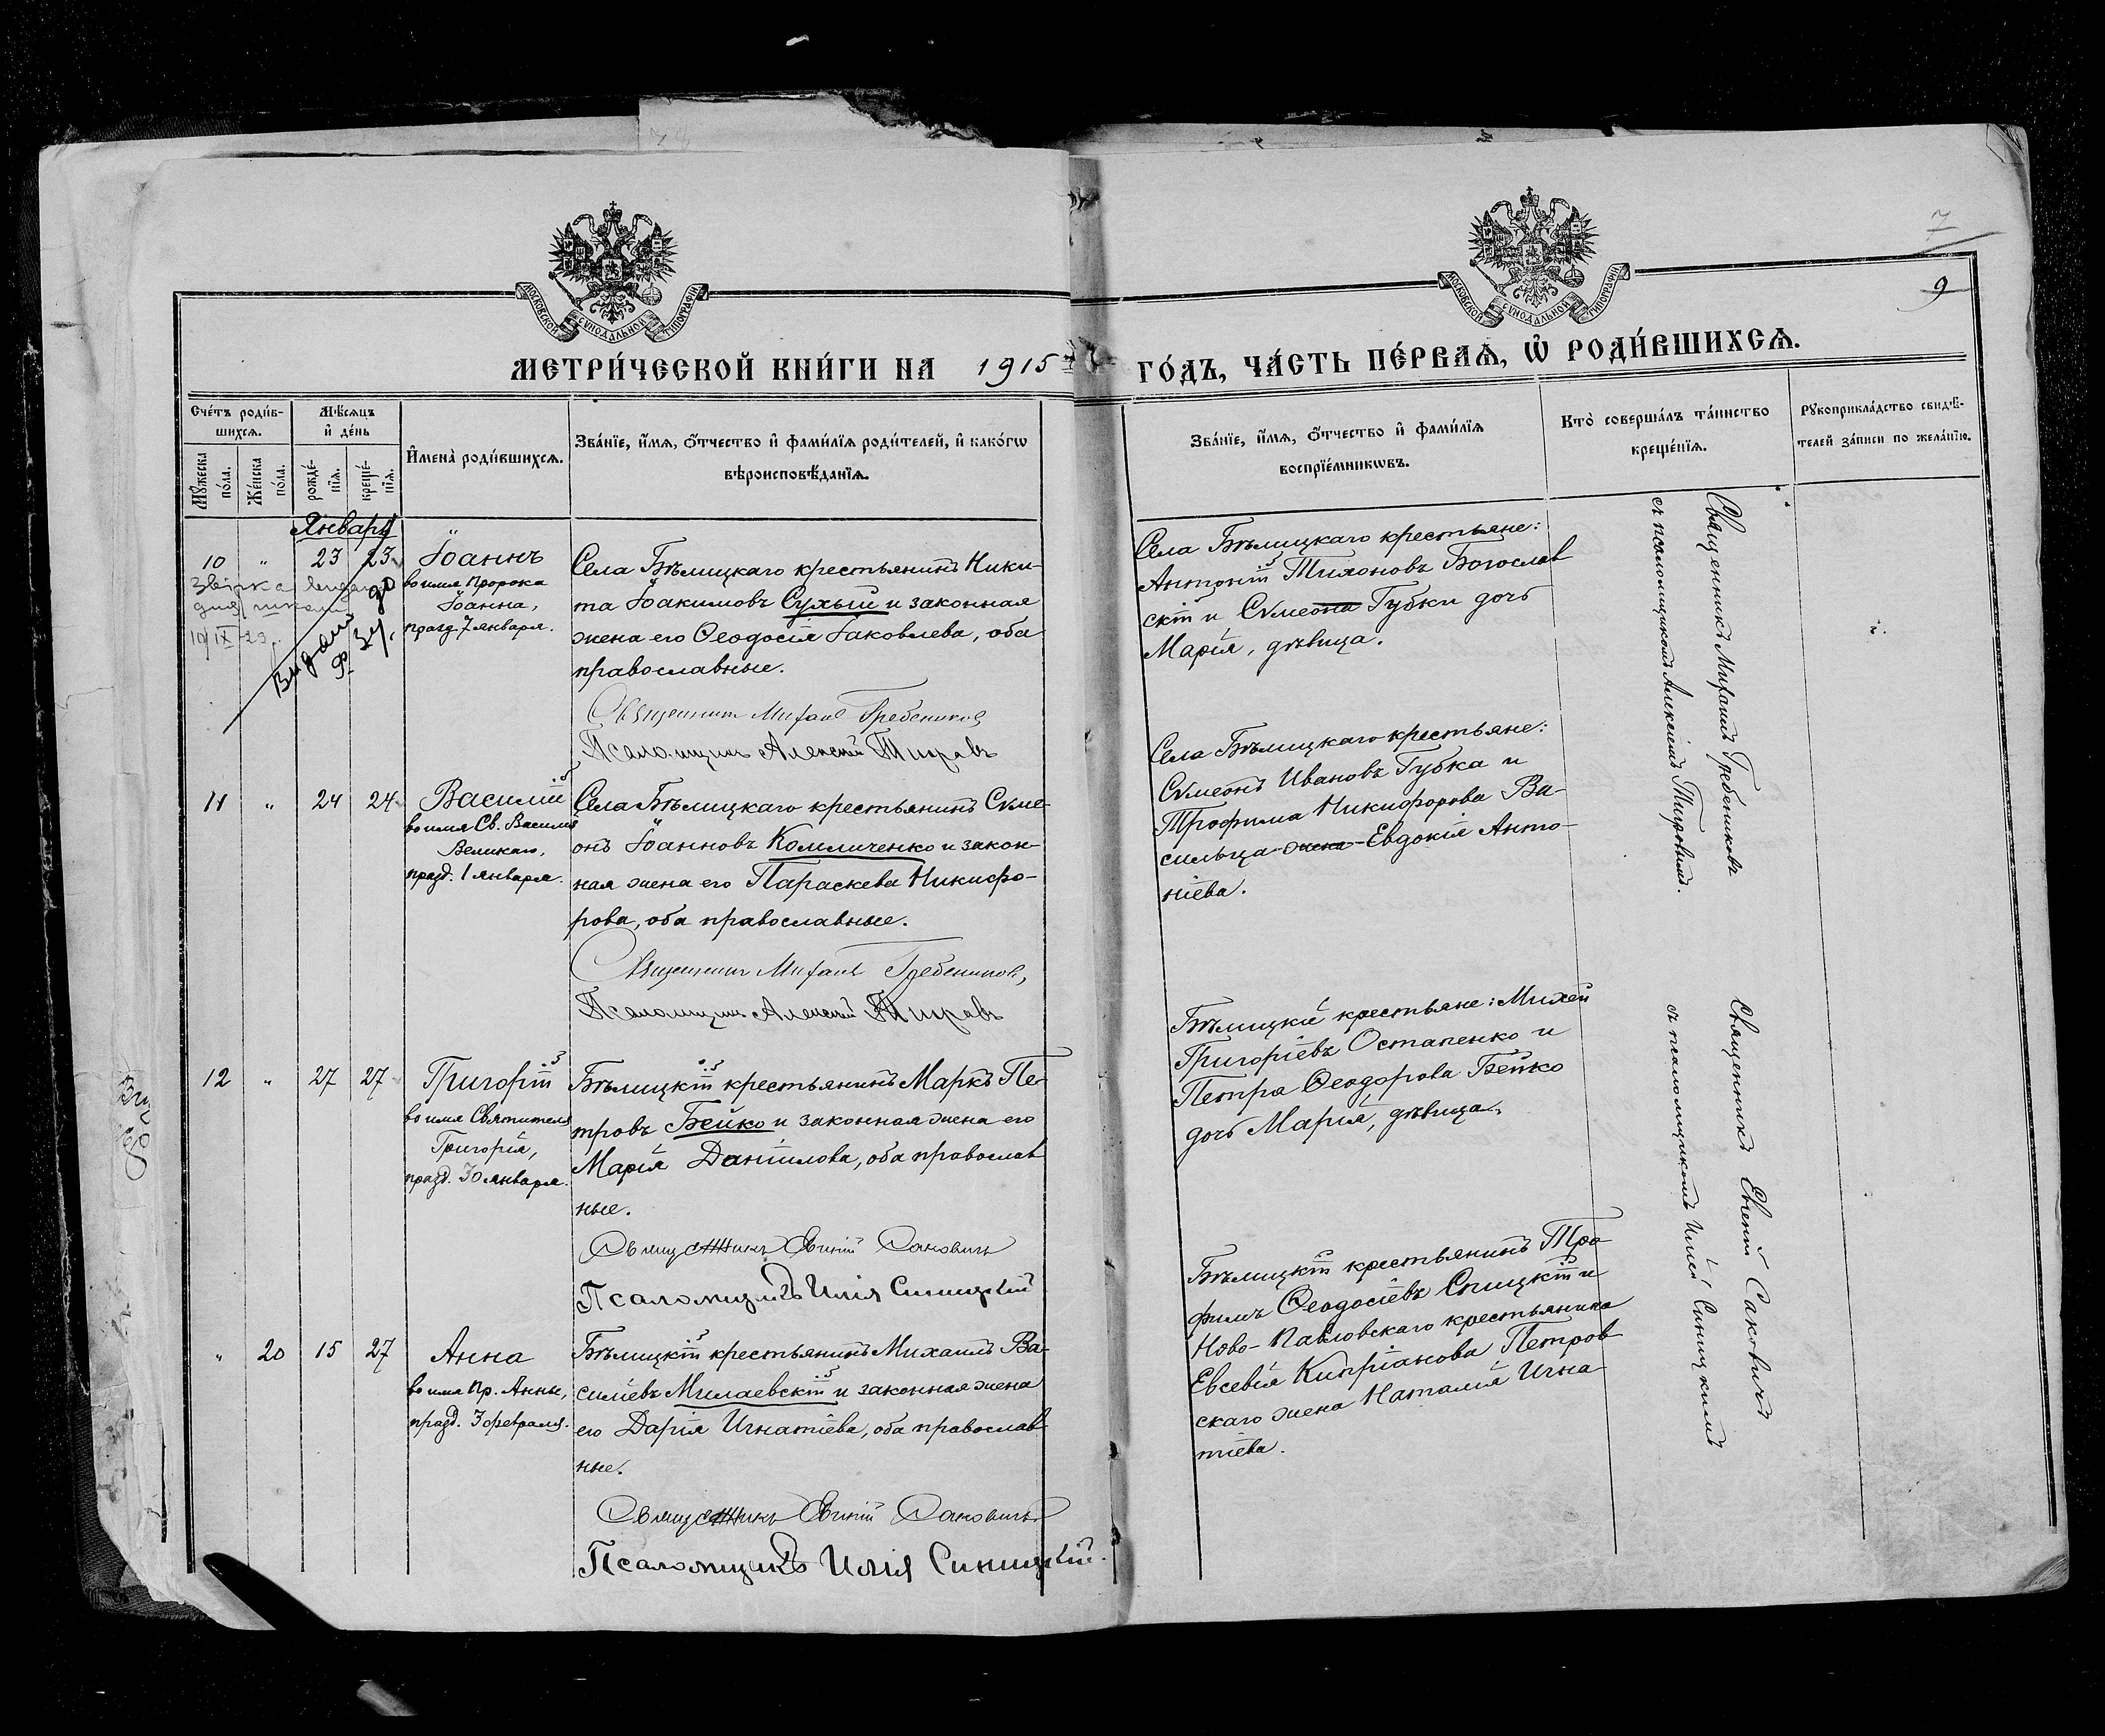 7
9
МОСКОВСКОЙ СУНОДАЛЬНОЙ ТИПОГРАФІИ
МОСКОВСКОЙ СУНОДАЛЬНОЙ ТИПОГРАФІИ
МЕТРИ́ЧЕСКОЙ КНИ́ГИ НА 1915 ГО́ДЪ, ЧА́СТЬ ПЕ́РВАѦ, Ѡ҆ РОДИ́ВШИХСѦ.
Сче́тъ роди́в-
шихсѧ.
Мꙋ́жеска по́ла.
Же́нска по́ла.
Мѣ́сѧцъ
и҆ де́нь
рожде́-
нїѧ.
креще́-
нїѧ.
И҆мена̀ роди́вшихсѧ.
Зва́нїе, и҆́мѧ, ѻ҆́тчество и҆ фами́лїѧ роди́телей, и҆ како́гѡ
вѣроисповѣ́данїѧ.
Зва́нїе, и҆́мѧ, ѻ҆́тчество и҆ фами́лїѧ
воспрїе́мникѡвъ.
Кто̀ соверша́лъ та́инство
креще́нїѧ.
Рꙋкоприкла́дство свидѣ́-
телей за́писи по жела́нїю.
Январь
10 " 23 23
Іоаннъ
во имя Пророка
Іоанна,
празд. 7 января.
Села Бѣлицкаго крестьянинъ Ники-
та Іоакимовъ Сухый и законная
жена его Ѳеодосія Іаковлева, оба
православные.
Священникъ Михаилъ Гребениковъ
Псаломщикъ Алексій Тировъ
Села Бѣлицкаго крестьяне:
Антоній Тихоновъ Богослав
скій и Сѵмеона Губки дочь
Марія, дѣвица.
Священникъ Михаилъ Гребениковъ
съ псаломщикомъ Алексіемъ Тировымъ.
11 " 24 24
Василій
во имя Св. Василія
Великаго,
празд. 1 января.
Села Бѣлицкаго крестьянинъ Сѵме-
онъ Іоанновъ Комличенко и закон-
ная жена его Параскева Никифо-
рова, оба православные.
Священникъ Михаилъ Гребениковъ,
Псаломщикъ Алексій Тировъ
Села Бѣлицкаго крестьяне:
Сѵмеонъ Ивановъ Губка и
Трофима Никифорова Ва-
сильца жена Евдокія Анто-
ніева.
12 " 27 27
Григорій
во имя Святителя
Григорія,
празд. 30 января.
Бѣлицкій крестьянинъ Маркъ Пе-
тровъ Бейко и законная жена его
Марія Даніилова, оба православ
ные.
Священникъ Евгеній Саковичъ
Псаломщикъ Илія Синицкій
Бѣлицкіе крестьяне: Михей
Григоріевъ Остапенко и
Петра Ѳеодорова Бейко
дочь Марія, дѣвица.
Священникъ Евгеній Саковичъ
съ псаломщикомъ Иліей Синицкимъ
" 20 15 27
Анна
во имя Пр. Анны,
празд. 3 февраля.
Бѣлицкій крестьянинъ Михаилъ Ва-
силіевъ Милаевскій и законная жена
его Дарія Игнатіева, оба православ
ные.
Священникъ Евгеній Саковичъ
Псаломщикъ Илія Синицкій.
Бѣлицкій крестьянинъ Тро-
фимъ Ѳеодосіевъ Спицкій и
Ново-Павловскаго крестьянина
Евсевія Кипріанова Петров
скаго жена Наталія Игна-
тіева.